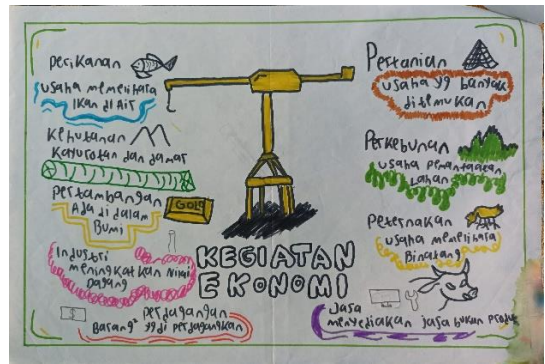 Perikanan
usaha memelihara
ikan di Air
Kehutanan
Kayu rotan dan damar
Pertambangan
Ada di dalam
Bumi
GOLD
Industri
meningkatkan Nilai
Dagang
$
perdagangan
Barang² yg di perdagangkan
KEGIATAN
EKONOMI
Pertanian
usaha yg banyak
ditemukan
PerKebunan
usaha pemanfaatan
Lahan
Peternakan
usaha memelihara
Binatang
Jasa
menyediakan jasa bukan produk